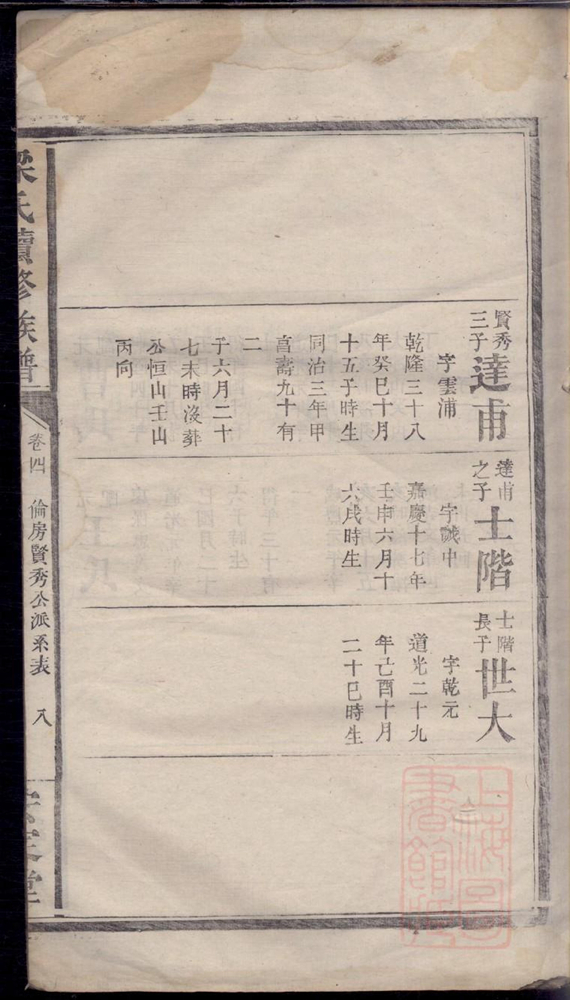 賢秀三子達甫
字雲浦
乾隆三十八
年癸巳十月
十五子時生
同治三年甲
子六月二十
七未時沒葬
公恒山壬山
丙向
享壽九十有
二
達甫之子士階
字誠中
嘉慶十七年
壬申六月十
六戌時生
士階長子世大
字乾元
道光二十九
年己酉十月
二十巳時生
梁氏續修族譜
卷四
倫房賢秀公派系表
八
上海圖書館藏